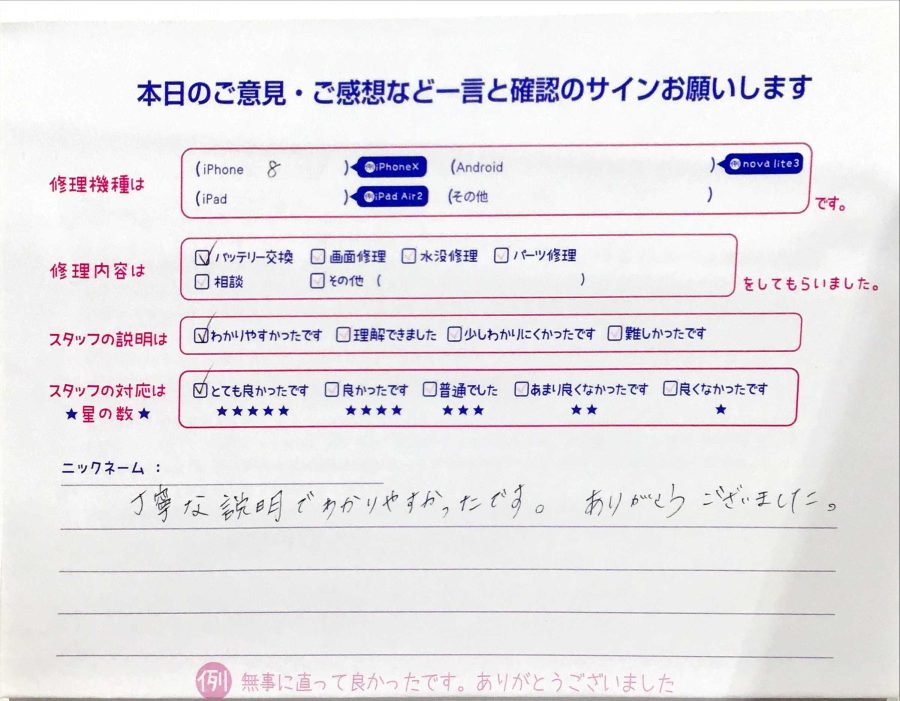 本日のご意見・ご感想など一言と確認のサインお願いします
修理機種は (iPhone 8 ) 例iPhoneX (Android ) 例nova lite3
(iPad ) 例iPad Air2 (その他 ) です。
修理内容は ☑バッテリー交換 □画面修理 □水没修理 □パーツ修理
□相談 □その他 ( ) をしてもらいました。
スタッフの説明は ☑わかりやすかったです □理解できました □少しわかりにくかったです □難しかったです
スタッフの対応は ☑とても良かったです □良かったです □普通でした □あまり良くなかったです □良くなかったです
★星の数★ ★★★★★ ★★★★ ★★★ ★★ ★
ニックネーム：
丁寧な説明でわかりやすかったです。 ありがとうございました。
例 無事に直って良かったです。ありがとうございました